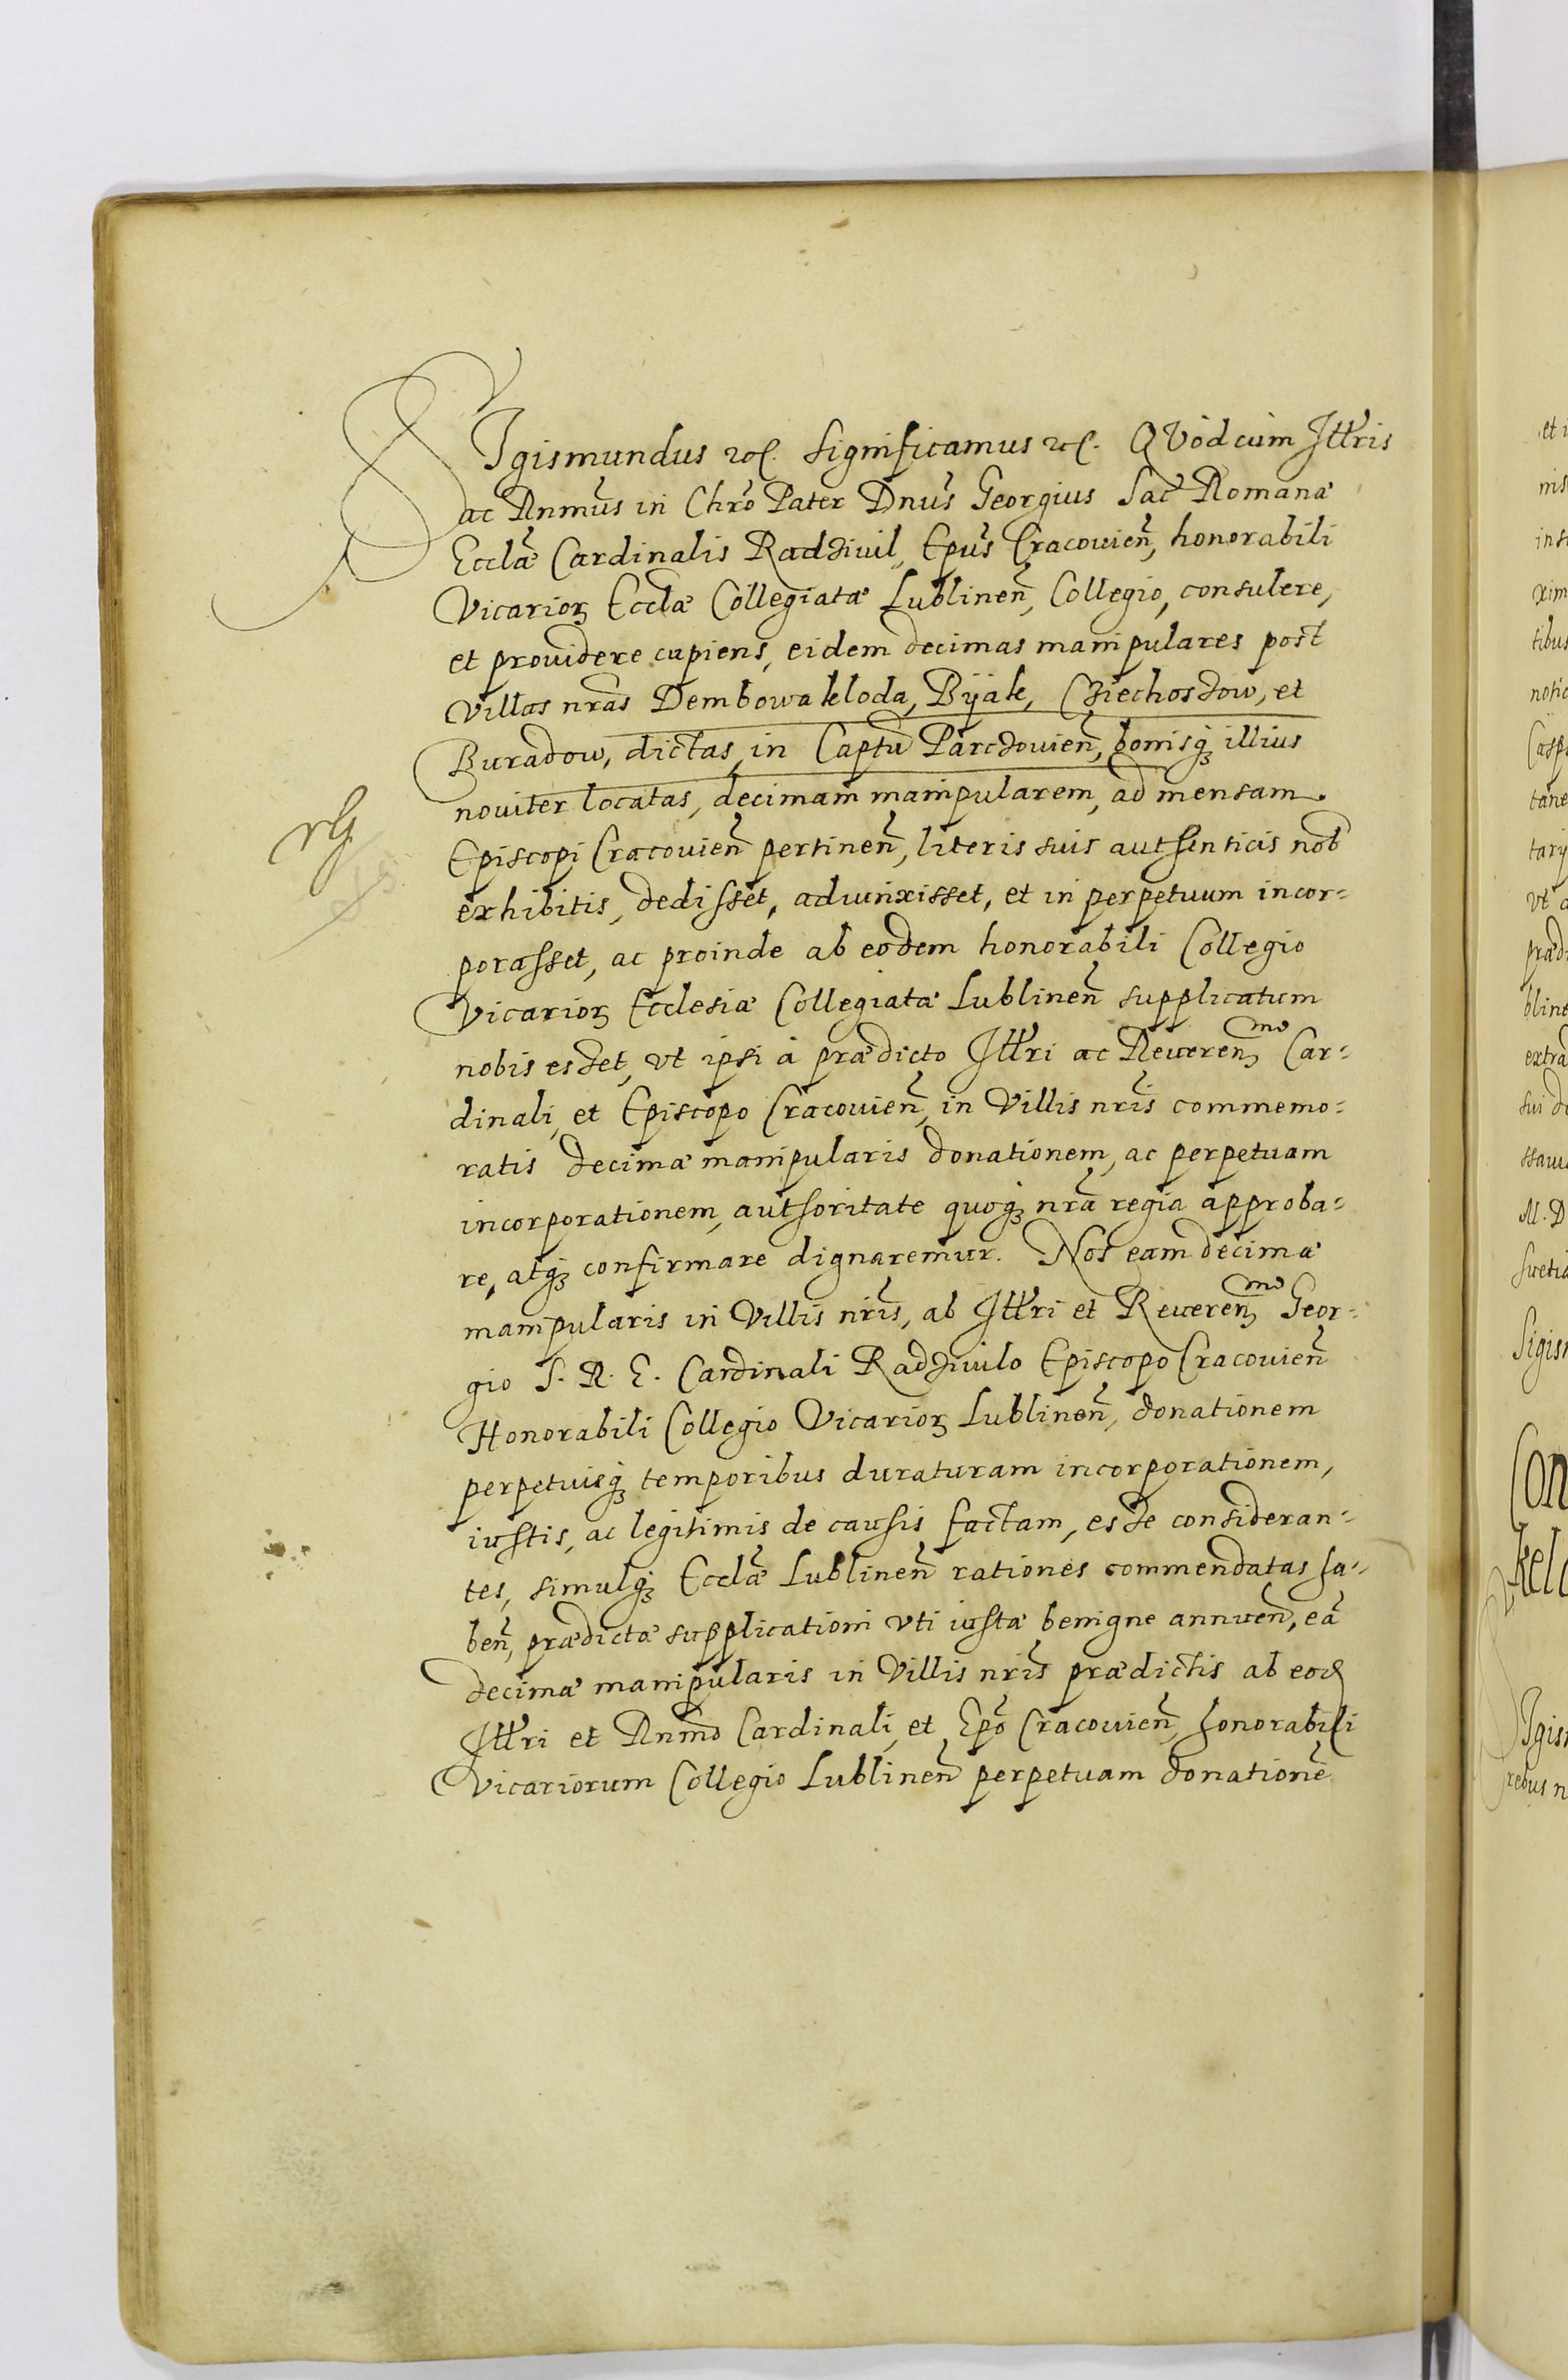 SIgismundus etc. Significamus etc. QVòd cùm Illris
ac Rnmus in Chro Pater Dnus Georgius Sac Romanæ
Ecclæ Cardinalis Radziuil, Epus Cracouien, honorabili
Vicarior Ecclæ Collegiatæ Lublinen, Collegio, consulere,
et prouidere cupiens, eidem decimas manipulares post
Villas nras Dembowakloda, Byale, Cziechoszow, et
Buradow, dictas, in Captu Parczouien, bonisq illius
nouiter locatas, decimam manipularem, ad mensam
Episcopi Cracouien pertinen, literis suis authenticis nob
exhibitis, dedisset, adiunxisset, et in perpetuum incor=
porasset, ac proinde ab eodem honorabili Collegio
Vicarior Ecclesiæ Collegiatæ Lublinen supplicatum
nobis esset, vt ipsi à prædicto Illri ac Reueren mo Car=
dinali, et Episcopo Cracouien, in Villis nris commemo=
ratis decimæ manipularis donationem, ac perpetuam
incorporationem, authoritate quoq nra regia approba=
re, atq confirmare dignaremur. Nos eam decimæ
manipularis in Villis nris, ab Illri et Reueren mo Geor=
gio S. R. E. Cardinali Radziuilo Episcopo Cracouien
Honorabili Collegio Vicarior Lublinen, donationem
perpetuisq temporibus duraturam incorporationem,
iustis, ac legitimis de causis factam, esse consideran=
tes, simulq Ecclæ Lublinen rationes commendatas ha=
ben, prædictæ supplicationi vti iustæ benigne annuen, eã
decimæ manipularis in Villis nris prædictis ab eod
Illri et Rnmo Cardinali, et Epo Cracouien, honorabili
Vicariorum Collegio Lublinen perpetuam donationẽ